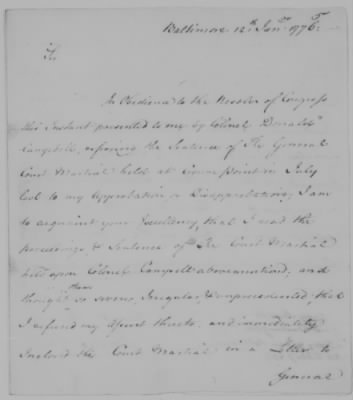 Baltimore 12th Jany 1776
Sir
In Obedience to the Resolve of Congress
this Instant presented to me by Colonel Donald
Campbell, referring the Sentence of the General
Court Martial held at Crown point in July
last to my Approbation or Disapprobation, I am
to acquaint your Excellency, that I read the
proceedings & Sentence of the Court Martial
held upon Colonel Campbell abovementioned, and
thought them so severe, Irregular, & unprecedented that
I refused my Assent thereto, and immediately
Inclosed the Court Martial in a Letter to
General